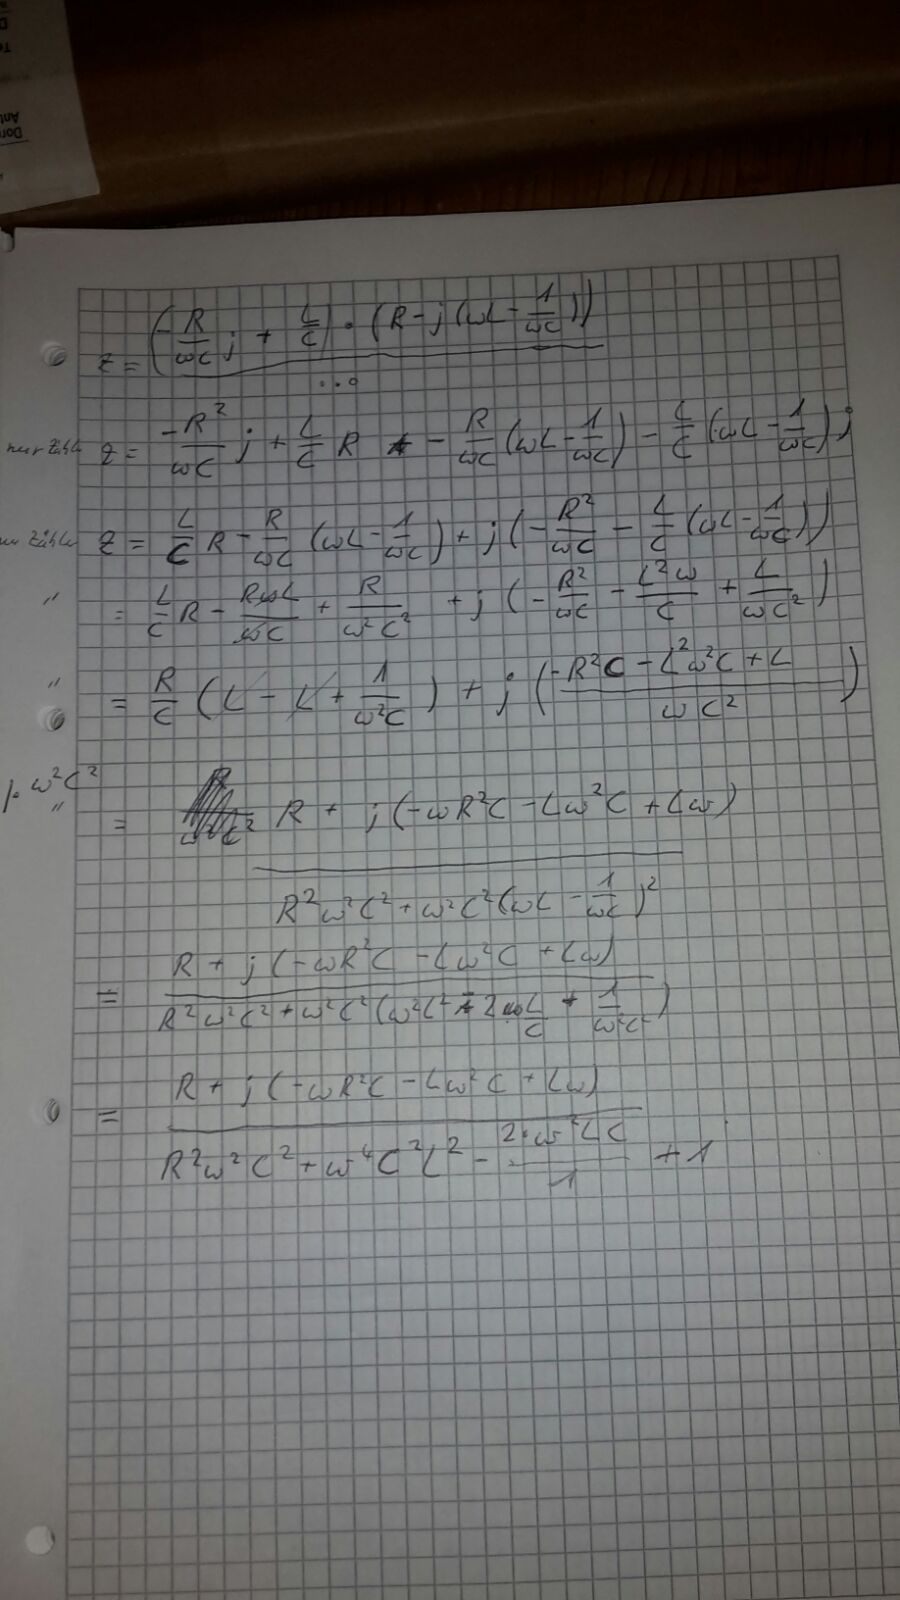 z = (-R/ωC j + L/C) · (R - j (ωL - 1/ωC))
...
nur Zähler z = -R²/ωC j + L/C R - R/ωC (ωL - 1/ωC) - L/C (ωL - 1/ωC) j
nur Zähler z = L/C R - R/ωC (ωL - 1/ωC) + j (- R²/ωC - L/C (ωL - 1/ωC))
" = L/C R - RωL/ωC + R/ω²C² + j (- R²/ωC - L²ω/C + L/ωC²)
" = R/C (L - L + 1/ω²C) + j (-R²C - L²ω²C + L / ωC²)
|· ω²C²
" = R + j (-ωR²C - Lω²C + Lω)
R²ω²C² + ω²C² (ωL - 1/ωC)²
= R + j (-ωR²C - Lω²C + Lω)
R²ω²C² + ω²C² (ω²L² - 2 L/C + 1/ω²C²)
= R + j (-ωR²C - Lω²C + Lω)
R²ω²C² + ω⁴C²L² - 2·ω²LC/1 + 1